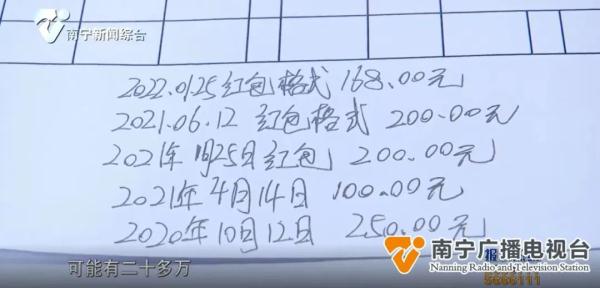 南宁新闻综合
2022.01.25 红包格式 168.00元
2021.06.12 红包格式 200.00元
2021年1月25日红包 200.00元
2021年4月14日 100.00元
2020年10月12日 250.00元
可能有二十多万
南宁广播电视台
Nanning Radio and Television Station
5666111